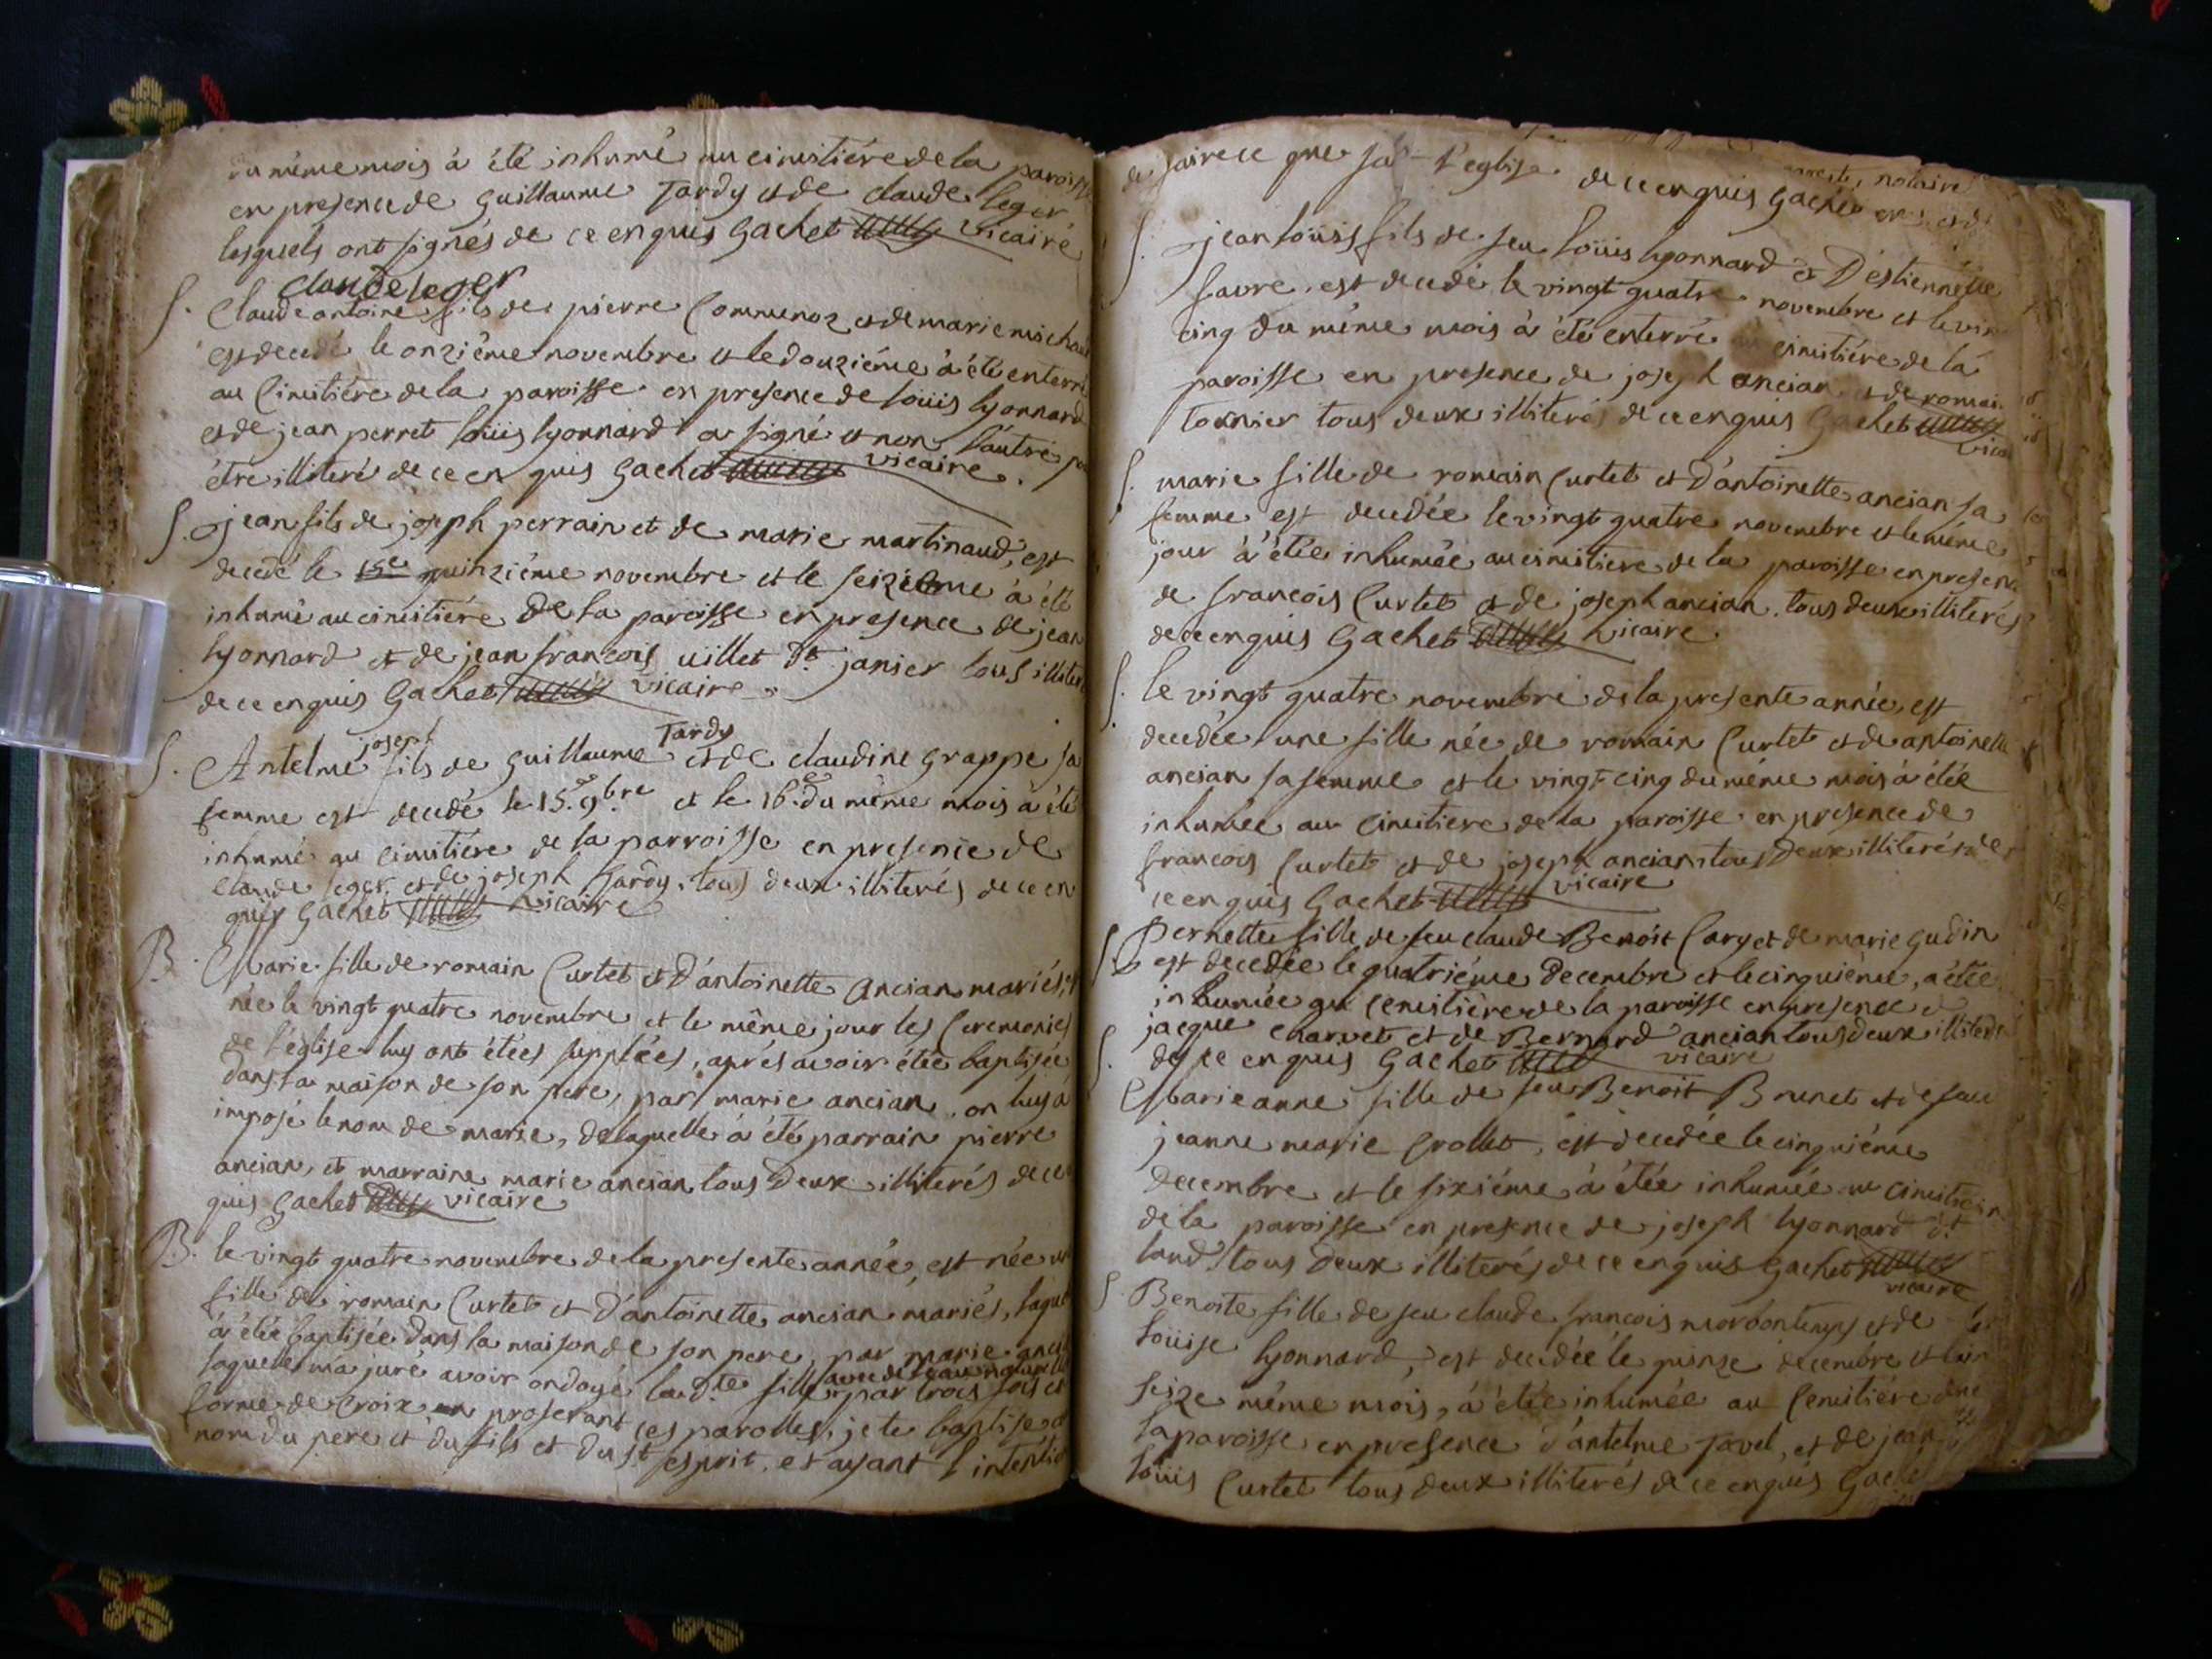 du même mois à été inhumé au cimitiére de la paroisse
en presence de Guillaume Tardy et de claude leger
lesquels ont signés de ce enquis Gachet vicaire
claude leger
S. Claude antoine fils de pierre Commenoz et de marie michaud
est decedé le onziéme novembre et le douziéme à été enterré
au Cimitiére de la paroisse en presence de loüis lyonnard
et de jean perret loüis lyonnard a signé et non l'autre pr
étre illiteré de ce en quis Gachet vicaire.
S. jean fils de joseph perrain et de marie martinaud, est
decedé le 15e quinziéme novembre et le seiziéme à été
inhumé au cimitiére De la paroisse en presence de jean
lyonnard et de jean francois uillet dt janier tous illiterés
de ce enquis Gachet vicaire.
S. Antelme joseph fils de Guillaume Tardy et de claudine Grappe sa
femme est decedé le 15e 9bre et le 16e du même mois à été
inhumé au cimitiére de la parroisse en presence de
claude leger et de joseph hardy, tous deux illiterés de ce en
quis Gachet vicaire
B. Marie fille de romain Curtet et D'antoinette Ancian mariés, est
née le vingt quatre novembre et le même jour les Ceremonies
de l'église luy ont étées supplées, aprés avoir étée baptisée
dans la maison de son pere, par marie ancian, on luy à
imposé le nom de marie, de laquelle à été parrain pierre
ancian, et marraine marie ancian, tous Deux illiterés de ce
quis Gachet vicaire
B. le vingt quatre novembre de la presente année, est née une
fille de romain Curtet et D'antoinette ancian mariés, laquelle
à étée baptisée dans la maison de son pere, par marie ancian
laquelle m'a juré avoir ondoyé la dte fille avec de l'eau naturelle par trois fois en
forme de Croix en proferant ces parolles, je te baptise au
nom du pere et du fils et du st esprit, et ayant l'intention
de faire ce que fait l'eglise. de ce enquis Gachet
notaire
S. jean loüis fils de feu loüis lyonnard et D'éstiennette
favre, est decedé le vingt quatre novembre et le vingt
cinq du même mois à été enterré au cimitiére de la
paroisse en presence de joseph ancian, et de romain
tornier tous deux illiterés de ce enquis Gachet
vicaire
S. marie fille de romain Curtet et D'antoinette ancian sa
femme est decedée le vingt quatre novembre et le même
jour à étée inhumée au cimitiere de la paroisse en presence
de francois Curtet et de joseph ancian tous deux illiterés
de ce enquis Gachet vicaire
S. le vingt quatre novembre de la presente année, est
decedée une fille née de romain Curtet et de antoinette
ancian sa femme et le vingt-cinq du même mois à étée
inhumée au cimitiere de la paroisse en presence de
francois Curtet et de joseph ancian tous Deux illiterés de
ce enquis Gachet vicaire
S. Pernette fille de feu claude Benoit Cary et de marie Gudin
est decedée le quatriéme Decembre et le cinquiéme, a étée
inhumée au cemitiére de la paroisse en presence de
jacque charvet et de Bernard ancian tous deux illiterés
de ce enquis Gachet vicaire
S. Marie anne fille de feu Benoit Brunet et de feue
jeanne marie Crollet, est decedée le cinquiéme
Decembre et le sixiéme à étée inhumée au cimitiere
de la paroisse en presence de joseph lyonnard dt
land tous Deux illiterés de ce enquis Gachet
vicaire
S. Benoite fille de feu claude francois morbontemps et de
loüise lyonnard, est decedée le quinze decembre et le
seize même mois, à étée inhumée au Cemitiére de
la paroisse en presence d'antelme favel, et de jean
loüis Curtet tous deux illiterés de ce enquis Gachet